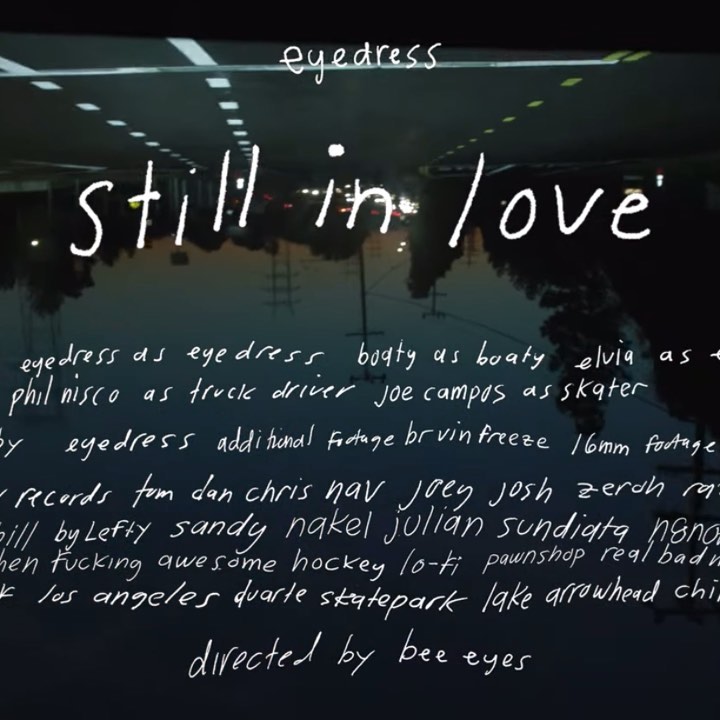 eyedress
still in love
eyedress as eyedress boaty as boaty elvia as
phil nisco as truck driver joe campos as skater
by eyedress additional footage brvinfreeze 16mm footage
records tom dan chris nav joey josh zerah
bill by Lefty sandy nakel julian sundiata
fucking awesome hockey lo-fi pawnshop real bad
los angeles duarte skatepark lake arrowhead
directed by bee eyes